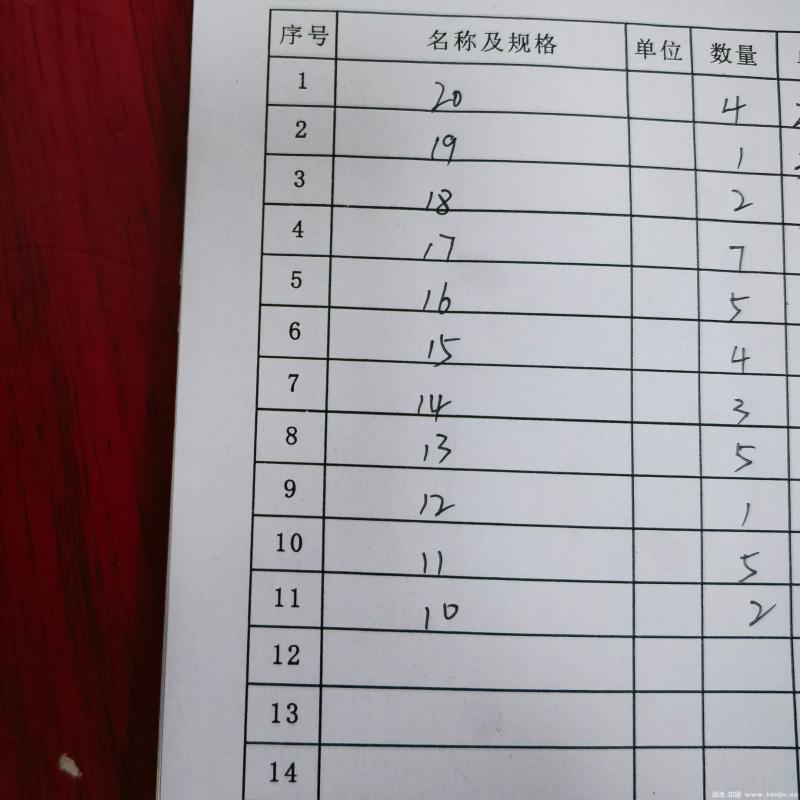 序号 名称及规格 单位 数量
1 20 4
2 19 1
3 18 2
4 17 7
5 16 5
6 15 4
7 14 3
8 13 5
9 12 1
10 11 5
11 10 2
12
13
14
www.taojiu.cn